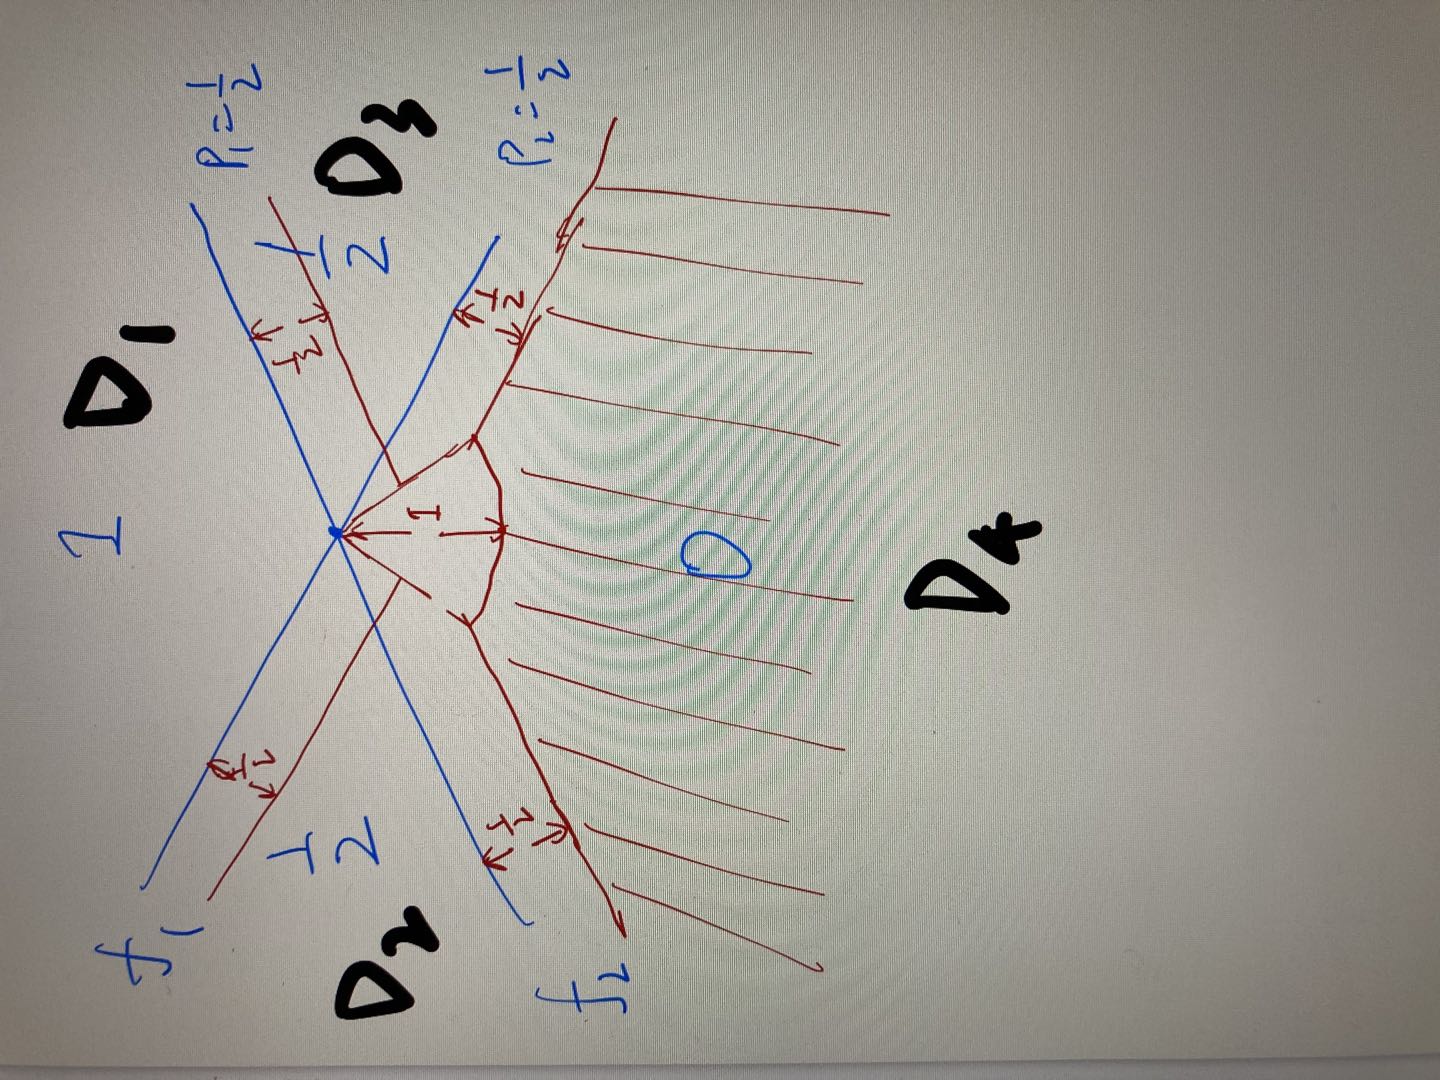 1
D1
f1
P1=1/2
1/2
1/2
1/2
1/2
D2
D3
1
1/2
1/2
P2=1/2
f2
0
D4